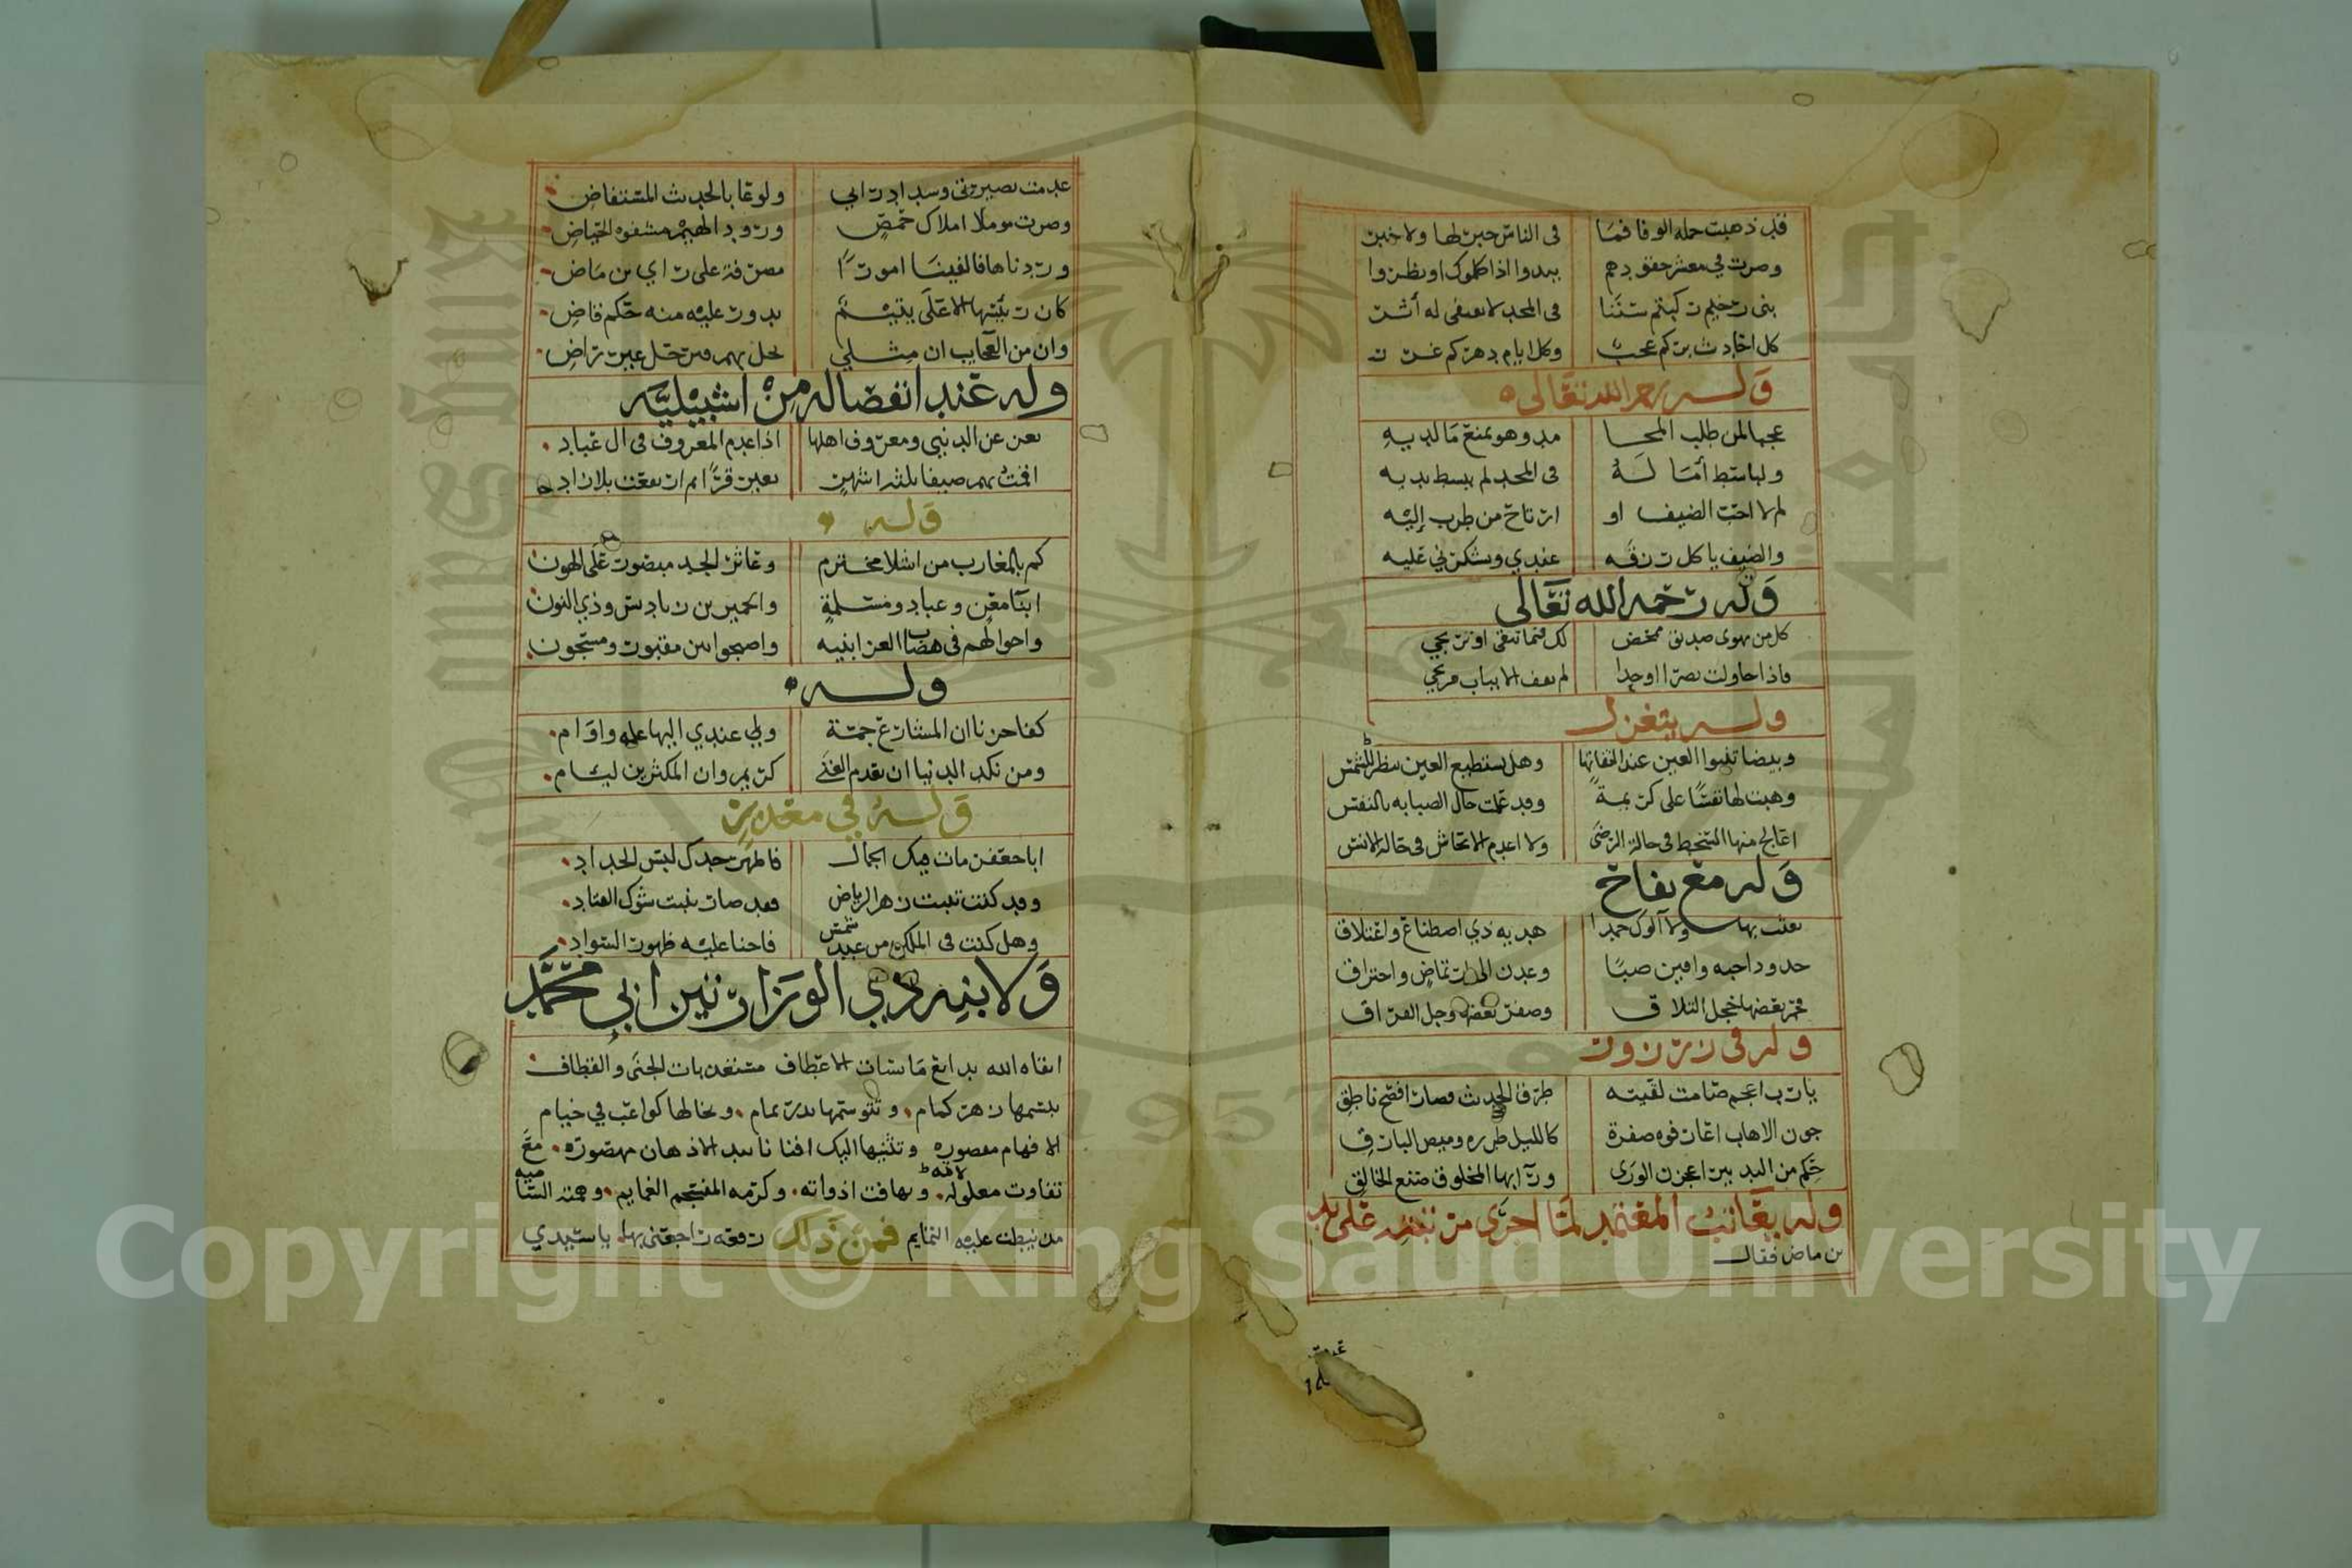 قد ذهبت جملة الوفا فما في الناس خبر لها ولا خبر
وصرت في معشر حقودهم يبدوا اذا كلموك او نظروا
بني رحيم ركبتم سننا في المجد لا يعفى له أثر
كل احاديث بركم عجب وكل ايام دهركم غرر
وله رحمه الله تعالى
عجبا لمن طلب المحا مد وهو يمنع ما لديه
ولباسط آماله في المجد لم يبسط يديه
لم لا احب الضيف او ارتاح من طرب إليه
والضيف ياكل رزقه عندي ويشكرني عليه
وله رحمه الله تعالى
كل من يهوى صديق ممحض لك فيما تتقي او ترتجي
فاذا حاولت نصرا او جدا لم يقف الا بباب مرتجي
وله يتغزل
وبيضا تنبوا العين عند التفاتها وهل تستطيع العين تنظر للشمس
وهبت لها نفسا على كريمة وقد علمت حال الصبابه بالنفس
اعالج منها السخط في حالة الرضى ولا اعدم الايحاش في حالة الانس
وله مع تفاح
بعثت بها ولا آلوك حمدا هديه ذي اصطناع واعتلاق
خدود احبه وافين صبا وعدن الى ارتماض واحتراق
فحمر بعضها خجل التلاق وصفر بعضها وجل الفراق
وله في زرزور
يا رب اعجم صامت لقنته طرف الحديث فصار افصح ناطق
جون الاهاب اعار فوه صفرة كالليل طرزه وميض البارق
حكم من التدبير اعجزن الورى ورآ بها المخلوق صنع الخالق
وله يعاتب المعتمد لما اجرى من نفيه على يد
بن ماض فقال
عدمت بصيرتي وسداد رايي ولوعا بالحديث المستفاض
وصرت مؤملا املاك حمص ورود الهيم مشفوه الحياض
وردناها فالفينا امورا مصرفة على راي بن ماض
كان رئيسها الاعلى يتيم يدور عليه منه حكم قاض
وان من العجايب ان مثلي يحل بهم فيرحل غير راض
وله عند انفصاله من اشبيليه
تعز عن الدنيي ومعروف اهلها اذا عدم المعروف في آل عباد
اقمت بهم ضيفا ثلاثة اشهر بغير قرًا ثم ارتحلت بلا زاد
وله
كم بالمغارب من اشلا مخترم وعاثر الجد مبصور على الهون
ابنا معن وعباد ومسلمة والحمير بن باديس وذي النون
واحوا لهم في هضاب العز ابنيه واصبحوا بين مقبور ومسجون
وله
كفا حزنا ان المشارع جمة ولي عندي اليها علة واوام
ومن نكد الدنيا ان يعدم الغنى كريم وان المكثرين ليام
وله في معذر
ابا جعفر مات فيك الجمال فاظهر خدك لبس الحداد
وقد كنت تنبت زهر الرياض فقد صار ينبت شوك القتاد
وهل كنت في الملك من عبد شمس فاخنا عليه ظهور السواد
ولابنه ذي الوزارتين ابي محمد
ابقاه الله بدايع مايسات الاعطاف مستغربات الجنى والقطاف
يبسمها زهر كمام، ويتوسمها بدر تمام، ويخالها كواعب في خيام
الافهام مقصوره وتثنيها اليك افنانا بيد الاذهان مهصوره. مع
تفاوت معلولاته وتهافت ادواته. وكرمه المنسجم الغمايم. وهمته الساميه
من نيطت عليه التمايم فمن ذلك رقعه راجعني بها. يا سيدي
Copyright © King Saud University
1957